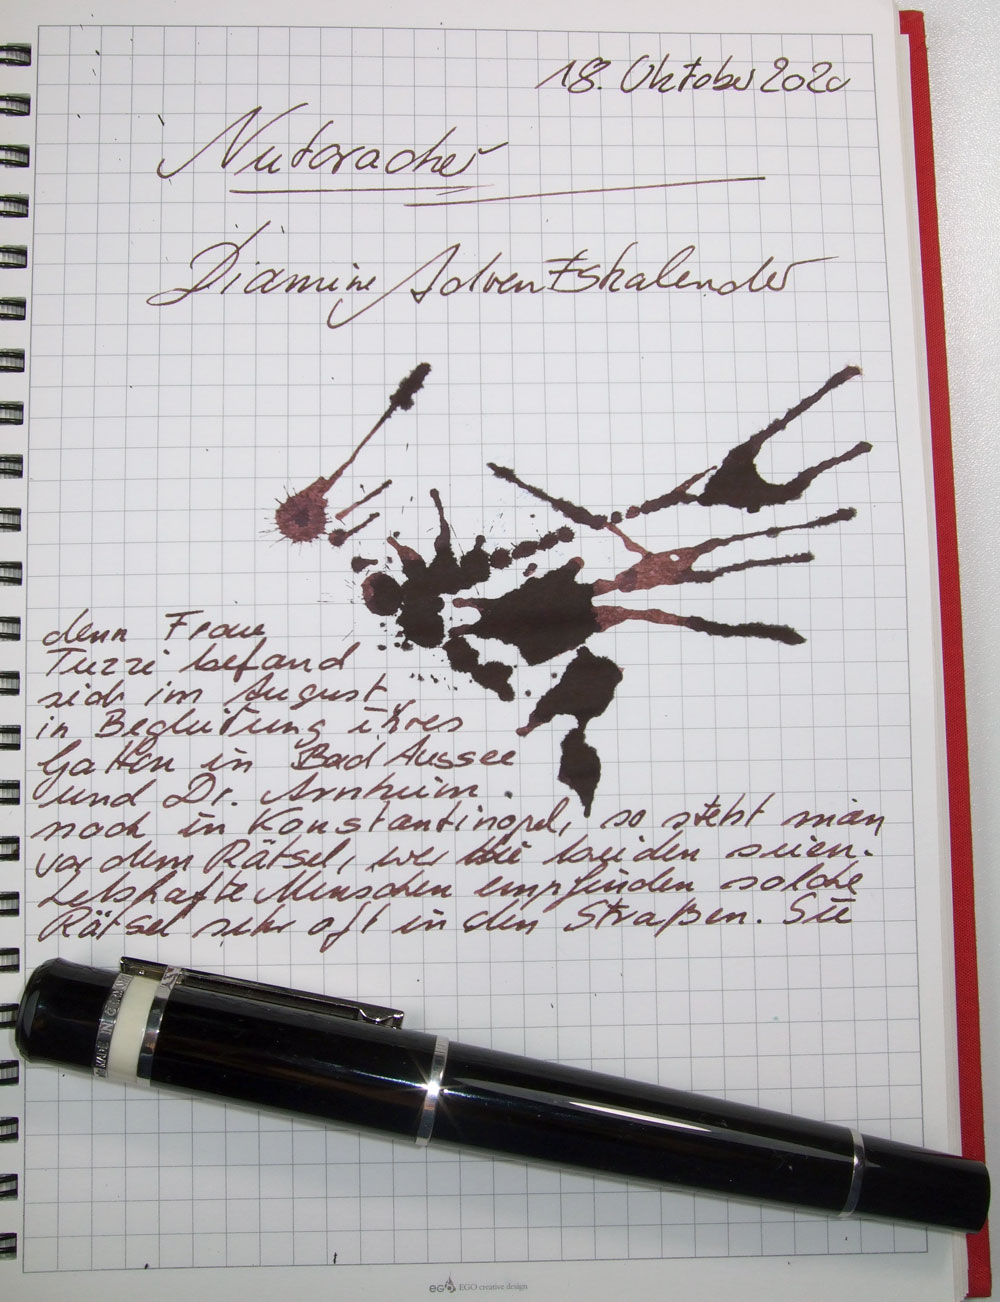 18. Oktober 2020
Nutcracker
Diamine Adventskalender
denn Frau
Tuzzi befand
sich im August
in Begleitung ihres
Gatten in Bad Aussee
und Dr. Arnheim
noch in Konstantinopel, so steht man
vor dem Rätsel, wer die beiden seien.
Lebhafte Menschen empfinden solche
Rätsel sehr oft in den Straßen. Sie
MADE IN GERMANY
EGO EGO creative design